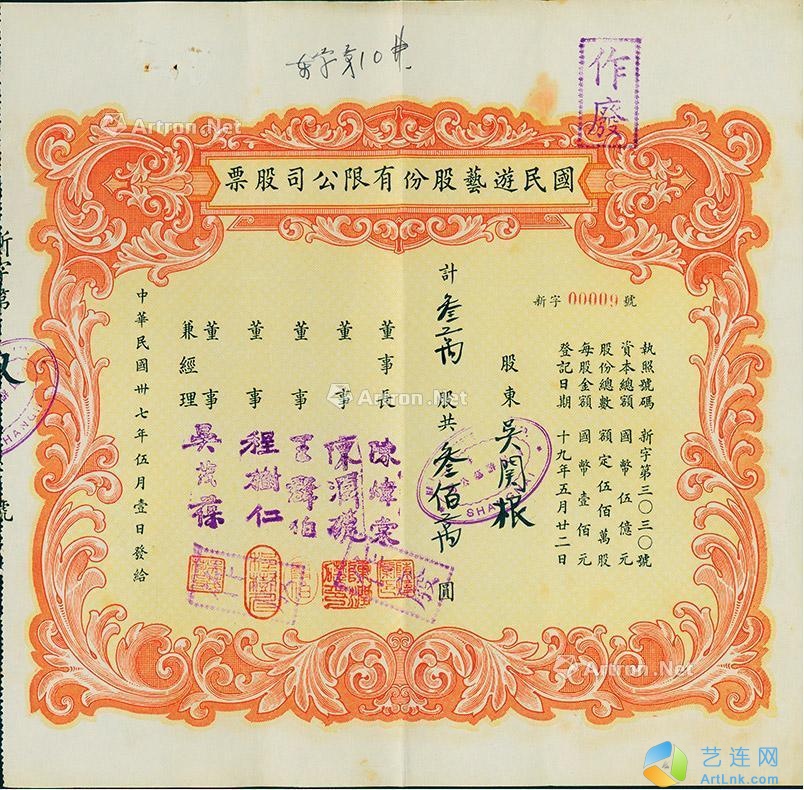 作廢
國民遊藝股份有限公司股票
新字 00009 號
執照號碼 新字第三〇三〇號
資本總額 國幣伍億元
股份總數 額定伍佰萬股
每股金額 國幣壹佰元
登記日期 十九年五月廿二日
股東 吳関根
計 叁萬 股共 叁佰萬 圓
董事長
董事 陳潤
董事 王 伯
董事 程樹仁
董事兼經理 吳茂
中華民國卅七年伍月壹日發給
作廢
SHANG
SHANG
新字第
號
Artron.Net
Artron.Net
Artron.Net
艺连网
ArtLnk.com